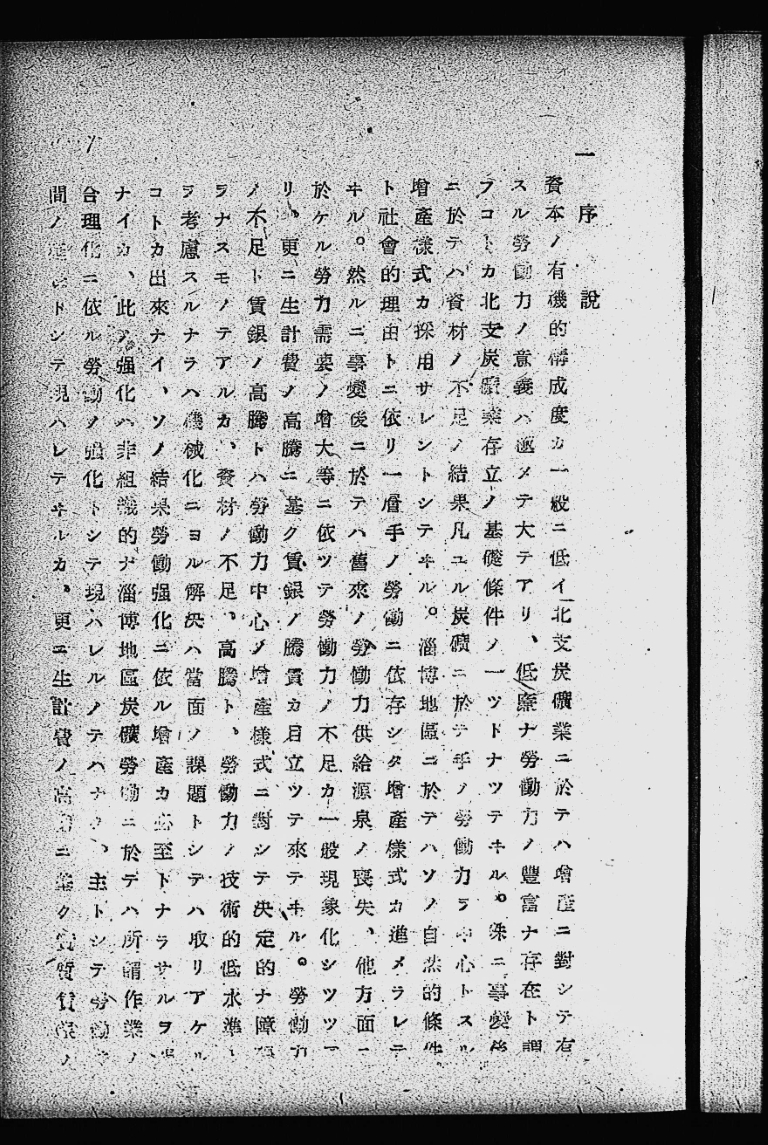 一 序 說
資本ノ有機的構成度カ一般ニ低イ北支炭礦業ニ於テハ增產ニ對シテ有
スル勞働力ノ意義ハ極メテ大テアリ、低廉ナ勞働力ノ豐富ナ存在ト謂
フコトカ北支炭礦業存立ノ基礎條件ノ一ツトナツテヰル。殊ニ事變後
ニ於テハ資材ノ不足ノ結果凡ユル炭礦ニ於テ手ノ勞働力ヲ中心トスル
增產樣式カ採用サレントシテヰル。淄博地區ニ於テハソノ自然的條件
ト社會的理由トニ依リ一層手ノ勞働ニ依存シタ增產樣式カ進メラレテ
ヰル。然ルニ事變後ニ於テハ舊來ノ勞働力供給源泉ノ喪失、他方面ニ
於ケル勞力需要ノ增大等ニ依ツテ勞働力ノ不足カ一般現象化シツツア
リ、更ニ生計費ノ高騰ニ基ク賃銀ノ騰貴カ目立ツテ來テヰル。勞働力
ノ不足ト賃銀ノ高騰トハ勞働力中心ノ增產樣式ニ對シテ決定的ナ障
ヲナスモノテアルカ、資材ノ不足、高騰ト、勞働力ノ技術的低水準ト
ヲ考慮スルナラハ機械化ニヨル解決ハ當面ノ課題トシテハ取リアケル
コトカ出來ナイ、ソノ結果勞働强化ニ依ル增產カ必至トナラサルヲ
ナイカ、此ノ强化ハ非組織的ナ淄博地區炭礦勞働ニ於テハ所謂作業ノ
合理化ニ依ル勞働ノ强化トシテ現ハレルノテハナク、主トシテ勞働
間ノ トシテ現ハレテヰルカ。更ニ生計費ノ高 ニ基ク實質賃銀ノ